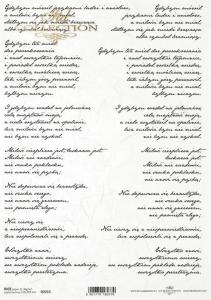 Gdybym mówił językami ludzi i aniołów,
a miłości bym nie miał,
stałbym się jak miedź brzęcząca
albo cymbał brzmiący.
Gdybym też miał
dar prorokowania
i znał wszystkie tajemnice,
i posiadał wszelką wiedzę,
i wszelką możliwą wiarę,
tak iżbym góry przenosił,
a miłości bym nie miał,
byłbym niczym.
I gdybym rozdał na jałmużnę
całą majętność moją,
a ciało wystawił na spalenie,
lecz miłości bym nie miał,
nic bym nie zyskał.
Miłość cierpliwa jest, łaskawa jest.
Miłość nie zazdrości,
nie szuka poklasku,
nie unosi się pychą;
Nie dopuszcza się bezwstydu,
nie szuka swego,
nie unosi się gniewem,
nie pamięta złego;
Nie cieszy się
z niesprawiedliwości,
lecz współweseli się z prawdą.
Wszystko znosi,
wszystkiemu wierzy,
we wszystkim pokłada nadzieję,
wszystko przetrzyma.
Gdybym mówił
językami ludzi i aniołów,
a miłości bym nie miał,
stałbym się jak miedź brzęcząca
albo cymbał brzmiący.
Gdybym też miał
dar prorokowania
i znał wszystkie tajemnice,
i posiadał wszelką wiedzę,
i wszelką możliwą wiarę,
tak iżbym góry przenosił,
a miłości bym nie miał,
byłbym niczym.
I gdybym rozdał na jałmużnę
całą majętność moją,
a ciało wystawił na spalenie,
lecz miłości bym nie miał,
nic bym nie zyskał.
Miłość cierpliwa jest,
łaskawa jest.
Miłość nie zazdrości,
nie szuka poklasku,
nie unosi się pychą;
Nie dopuszcza się bezwstydu,
nie szuka swego,
nie unosi się gniewem,
nie pamięta złego;
Nie cieszy się
z niesprawiedliwości,
lecz współweseli się z prawdą.
Wszystko znosi,
wszystkiemu wierzy,
we wszystkim pokłada nadzieję,
wszystko przetrzyma.